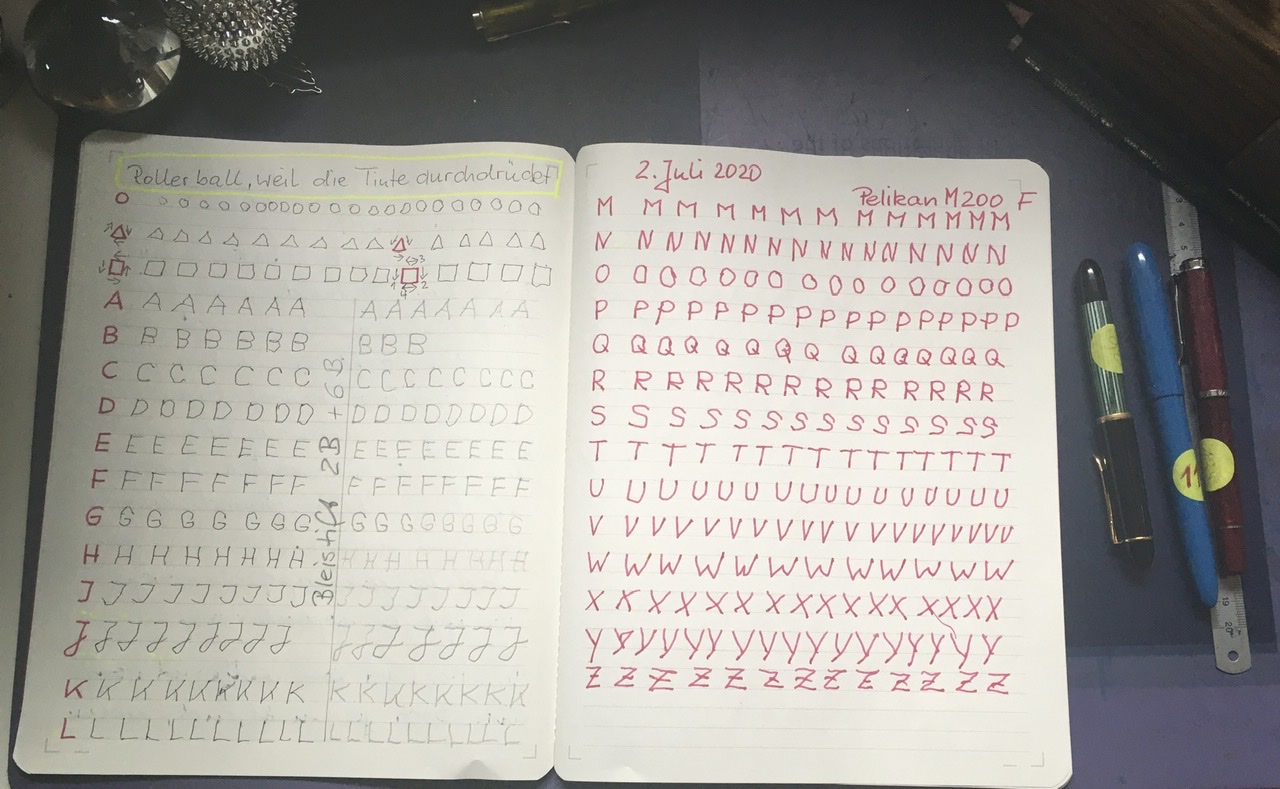 Rollerball, weil die Tinte durchdrückt
O O O O O O O O O O O O O O O O O O O O O O O
A A A A A A A A A A A A A A
B B B B B B B B B B
C C C C C C C C C C C C C C C
D D D D D D D D D D D D D D D D
E E E E E E E E E E E E E E E E
F F F F F F F F F F F F F F F F
G G G G G G G G G G G G G G G G
H H H H H H H H H H H H H H H H
J J J J J J J J J J J J J J J J J
J J J J J J J J J J J J J J J J
K K K K K K K K K K K K K K K K K
L L L L L L L L L L L L L L L L L L
Bleistift 2B + 6B
2. Juli 2020
Pelikan M200 F
M M M M M M M M M M M M M
N N N N N N N N N N N N N N N N
O O O O O O O O O O O O O O O O
P P P P P P P P P P P P P P P P P
Q Q Q Q Q Q Q Q Q Q Q Q Q Q Q
R R R R R R R R R R R R R R
S S S S S S S S S S S S S S
T T T T T T T T T T T T T T T
U U U U U U U U U U U U U U U U
V V V V V V V V V V V V V V V V V
W W W W W W W W W W W W
X X X X X X X X X X X X X X X X
Y Y Y Y Y Y Y Y Y Y Y Y Y Y Y Y Y
Z Z Z Z Z Z Z Z Z Z Z Z Z
11